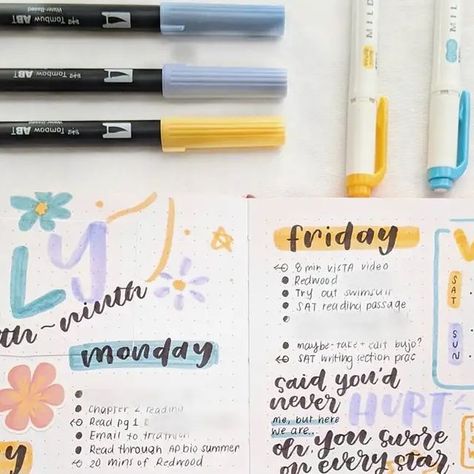 Water-Based
Tombow ABT
Tombow ABT
Tombow ABT
MILD
MILD
LY
th-ninth
monday
chapter 2 reading
Read pg 1
Email to
Read through AP bio summer
20 mins of Redwood
friday
8 min VISTA video
Redwood
Try out swimsuit
SAT reading passage
maybe take + edit bujo?
SAT writing section prac
said you'd
never HURT
me, but here
we are..
oh, you swore
on every star
SAT
SUN